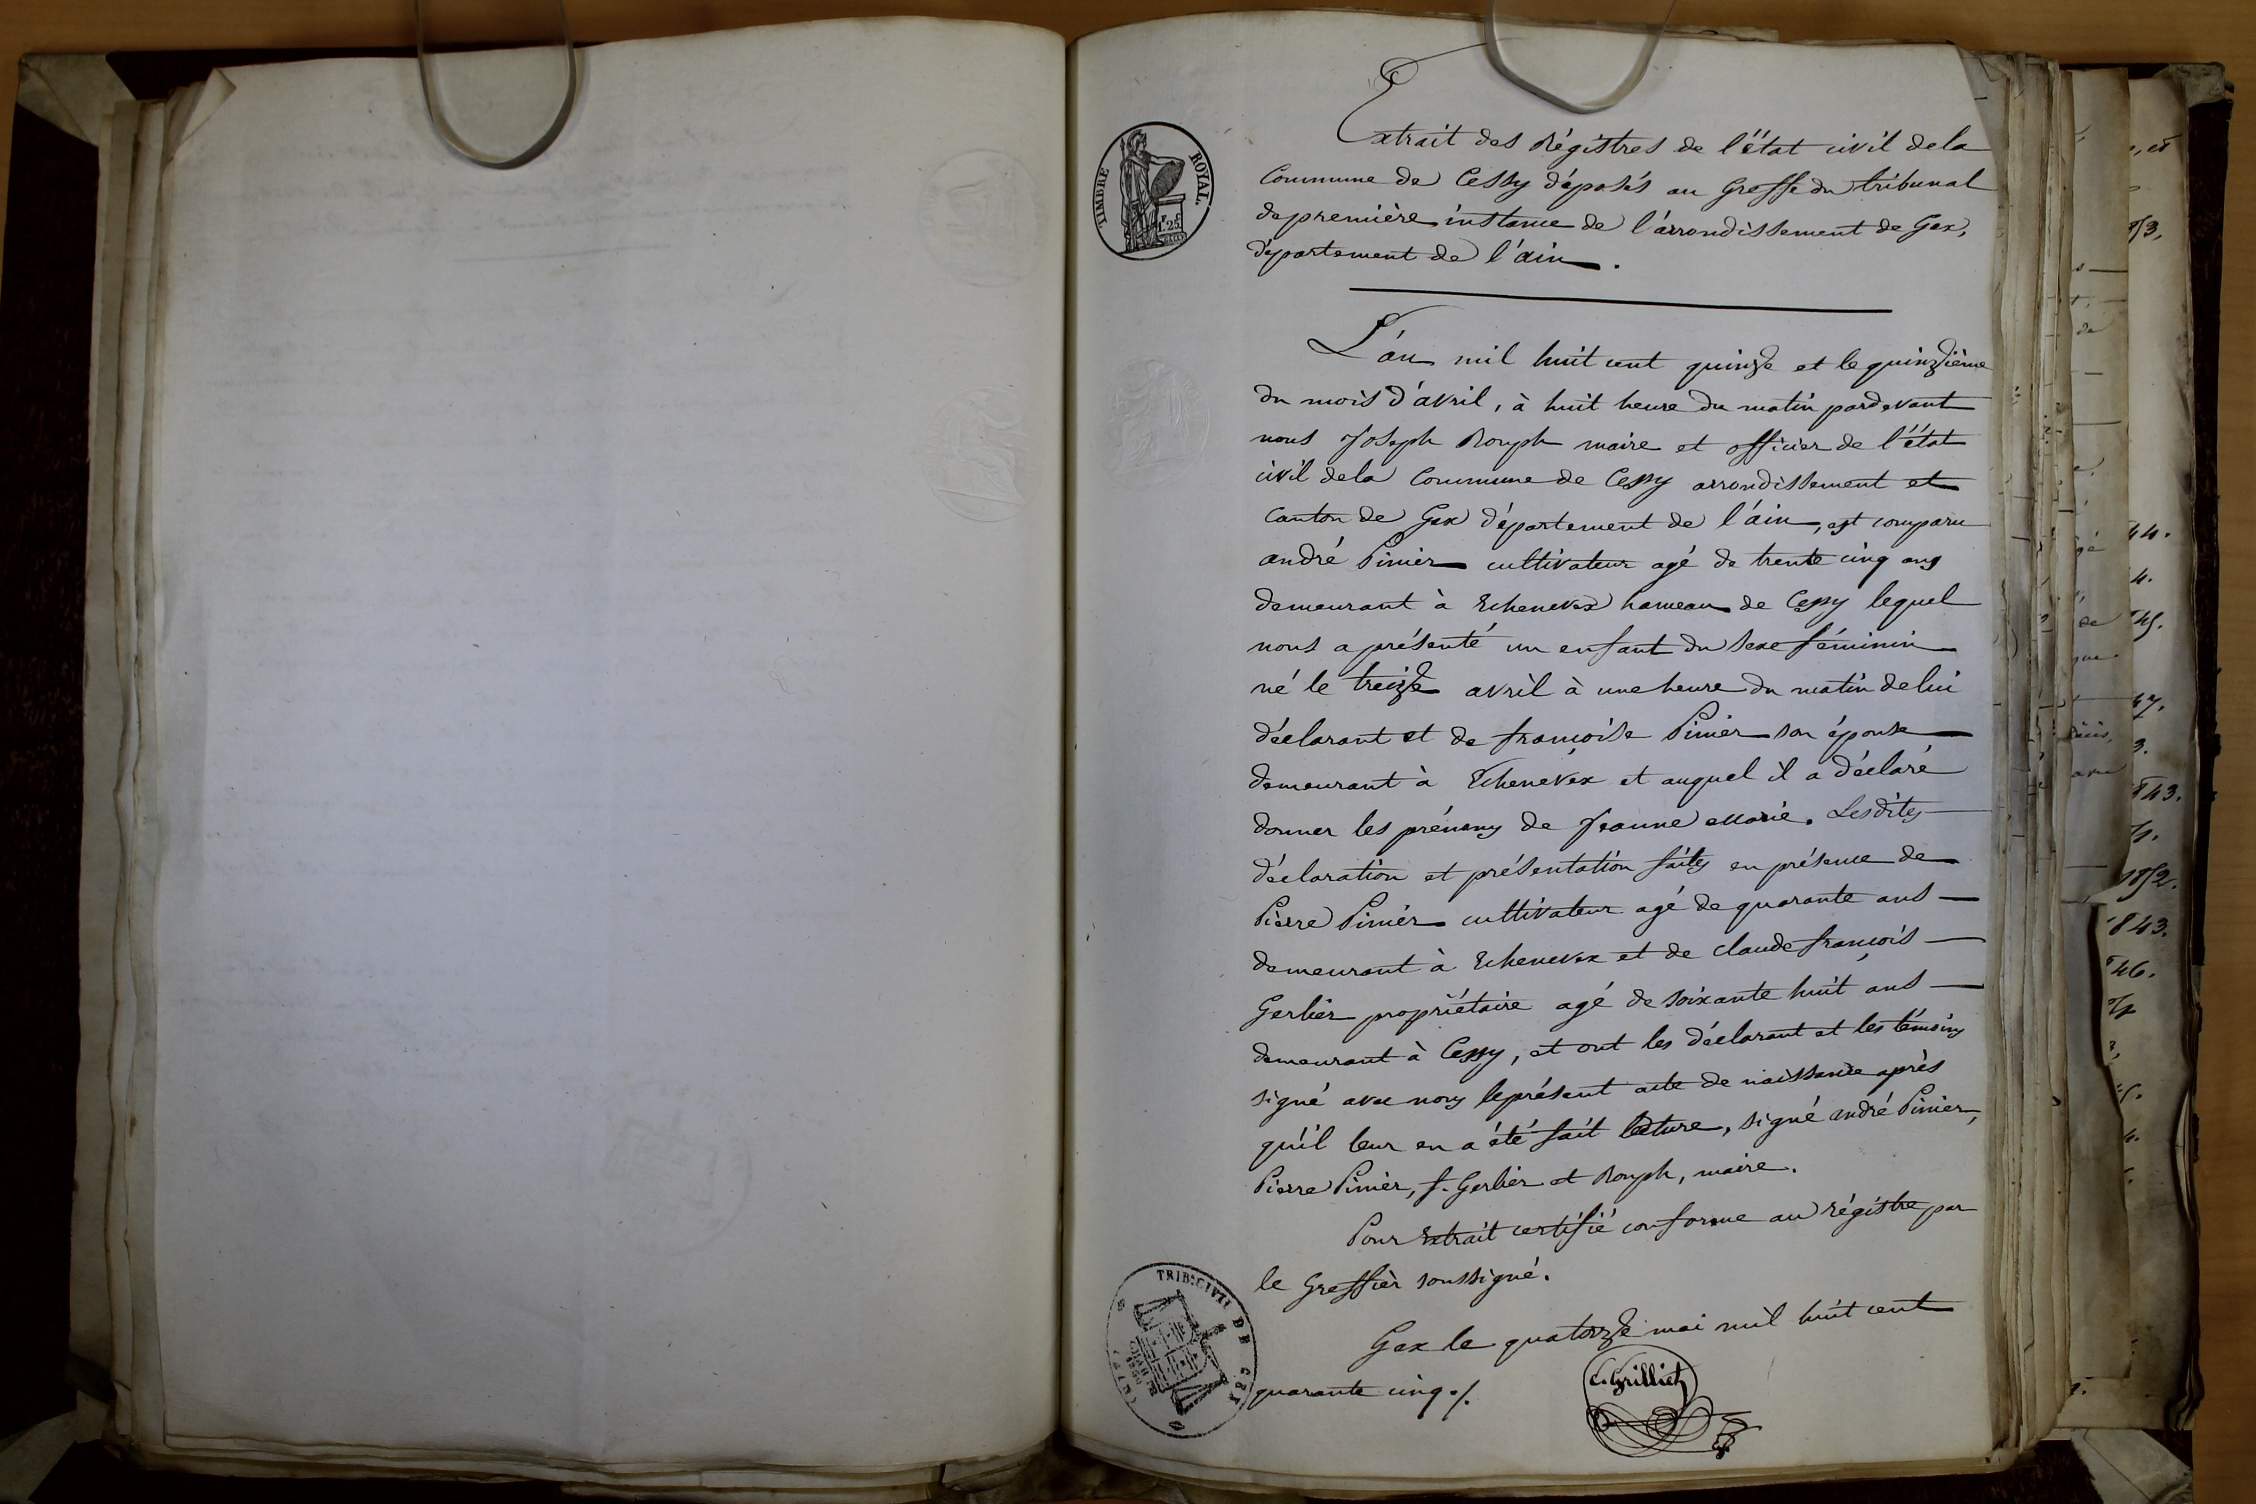 TIMBRE ROYAL
1.25
Extrait des Régistres de l'état civil de la
Commune de Cessy déposés au Greffe du tribunal
de première instance de l'arrondissement de Gex,
département de l'ain.
L'an mil huit cent quinze et le quinzième
du mois d'avril, à huit heure du matin pardevant
nous Joseph Rouph maire et officier de l'état
civil de la Commune de Cessy arrondissement et
Canton de Gex département de l'ain, est comparu
andré Pinier cultivateur agé de trente cinq ans
demeurant à Echenevex hameau de Cessy lequel
nous a présenté un enfant du sexe féminin
né le treize avril à une heure du matin de lui
déclarant et de françoise Pinier son épouse
demeurant à Echenevex et auquel il a déclaré
donner les prénoms de Jeanne Marie. Lesdites
déclaration et présentation faites en présence de
Pierre Pinier cultivateur agé de quarante ans
demeurant à Echenevex et de claude françois
Gerlier propriétaire agé de soixante huit ans
demeurant à Cessy, et ont les déclarant et les témoins
signé avec nous le présent acte de naissance après
qu'il leur en a été fait lecture, signé andré Pinier,
Pierre Pinier, f. Gerlier et Rouph, maire.
Pour Extrait certifié conforme au régistre par
le Greffier soussigné.
Gex le quatorze mai mil huit cent
quarante cinq ./.
C. Grilliet
TRIB. CIVIL DE GEX